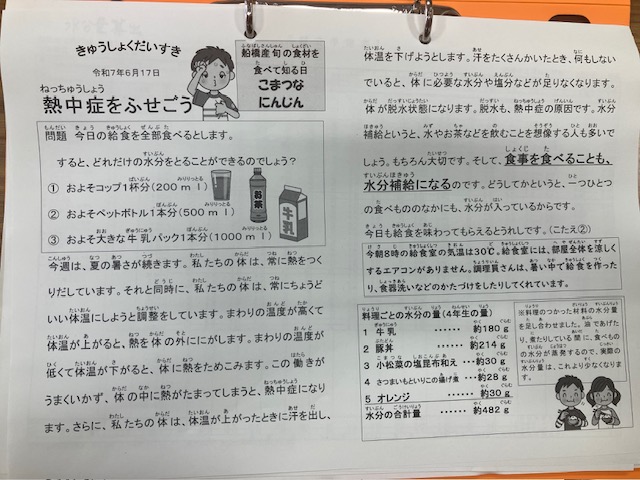 きゅうしょくだいすき
令和7年6月17日
船橋産旬の食材を
食べて知る日
こまつな
にんじん
熱中症をふせごう
問題 今日の給食を全部食べるとします。
すると、どれだけの水分をとることができるのでしょう?
① およそコップ1杯分(200ml)
② およそペットボトル1本分(500ml)
③ およそ大きな牛乳パック1本分(1000ml)
お茶
牛乳
今週は、夏の暑さが続きます。私たちの体は、常に熱をつく
りだしています。それと同時に、私たちの体は、常にちょうど
いい体温にしようと調整をしています。まわりの温度が高くて
体温が上がると、熱を体の外ににがします。まわりの温度が
低くて体温が下がると、体に熱をためこみます。この働きが
うまくいかず、体の中に熱がたまってしまうと、熱中症になり
ます。さらに、私たちの体は、体温が上がったときに汗を出し、
体温を下げようとします。汗をたくさんかいたとき、何もしない
でいると、体に必要な水分や塩分などが足りなくなります。
体が脱水状態になります。脱水も、熱中症の原因です。水分
補給というと、水やお茶などを飲むことを想像する人も多いで
しょう。もちろん大切です。そして、食事を食べることも、
水分補給になるのです。どうしてかというと、一つひとつ
の食べもののなかにも、水分が入っているからです。
今日も給食を味わってもらえるとうれしです。(こたえ②)
今朝8時の給食室の気温は30℃。給食室には、部屋全体を涼しく
するエアコンがありません。調理員さんは、暑い中で給食を作った
り、食器洗いなどのかたづけをしたりしてくれています。
料理ごとの水分の量(4年生の量)
1 牛乳 ・・・・・・ 約180g
2 豚丼 ・・・・・・ 約214g
3 小松菜の塩昆布和え ・・・約30g
4 さつまいもといりこの揚げ煮 ・・・約28g
5 オレンジ ・・・・・・ 約30g
水分の合計量 ・・・・・・ 約482g
※料理のつかった材料の水分量
を足し合わせました。油であげた
り、煮たりしている間に、食べもの
の水分が蒸発するので、実際の
水分量は、これより少なくなります。